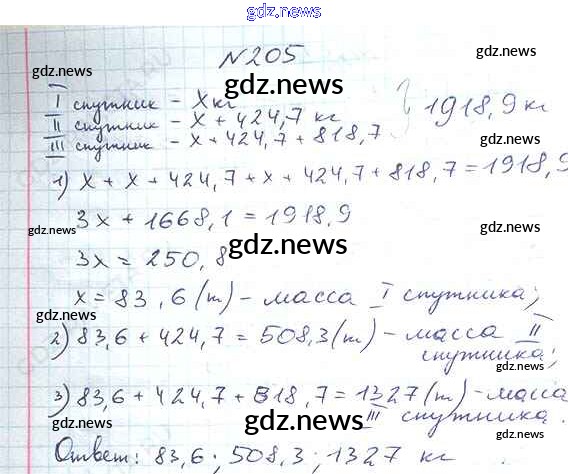 gdz.news
gdz.news
№205
gdz.news
gdz.news
I спутник - x кг
II спутник - x + 424,7 кг
III спутник - x + 424,7 + 818,7
} 1918,9 кг
gdz.news
gdz.news
1) x + x + 424,7 + x + 424,7 + 818,7 = 1918,9
3x + 1668,1 = 1918,9
gdz.news
gdz.news
gdz.news
3x = 250,8
x = 83,6 (т) - масса I спутника;
gdz.news
gdz.news
2) 83,6 + 424,7 = 508,3 (т) - масса II
спутника;
gdz.news
3) 83,6 + 424,7 + 818,7 = 1327 (т) - масса
III спутника.
gdz.news
gdz.news
Ответ: 83,6; 508,3; 1327 кг
gdz.news
gdz.news